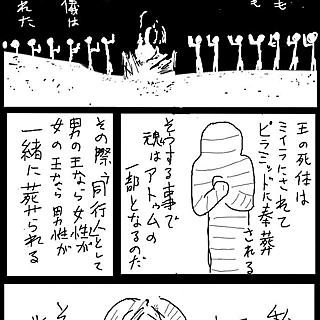 も
儀は
れた
王の死体は
ミイラにされて
ピラミッドに奉葬
される
そうする事で
魂はアトゥムの
一部となるのだ
その際「同行人」として
男の王なら女性が
女の王なら男性が
一緒に葬られる
私
そ